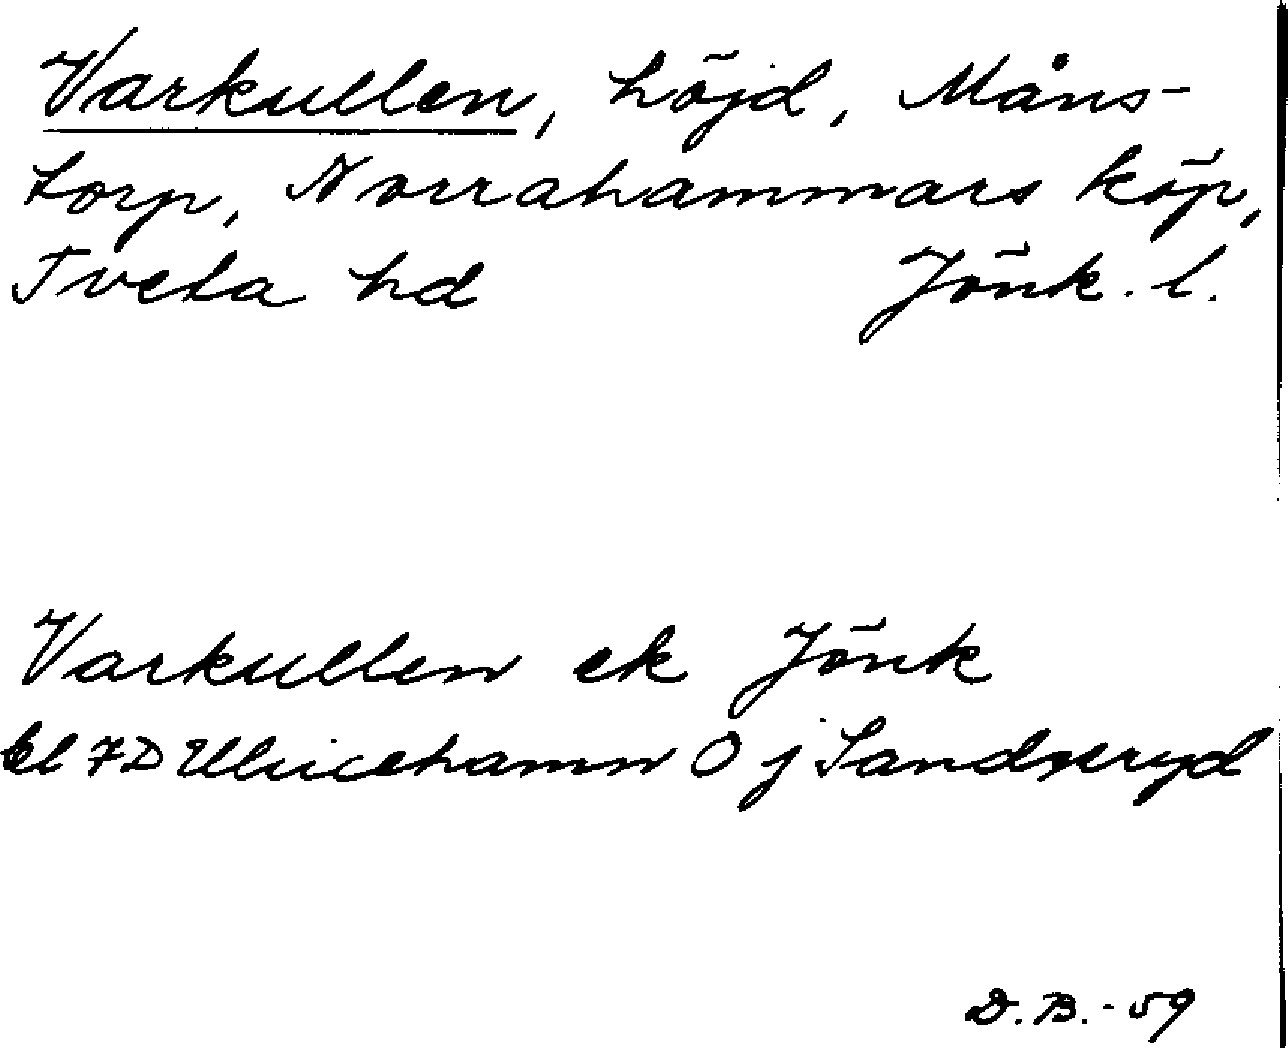 Varkullen, höjd, Måns-
torp, Norrahammars köp,
Tveta hd Jönk. l.
Varkullen ek Jönk
bl 7D Ulricehamn Ö j Sandseryd
D.B.-59